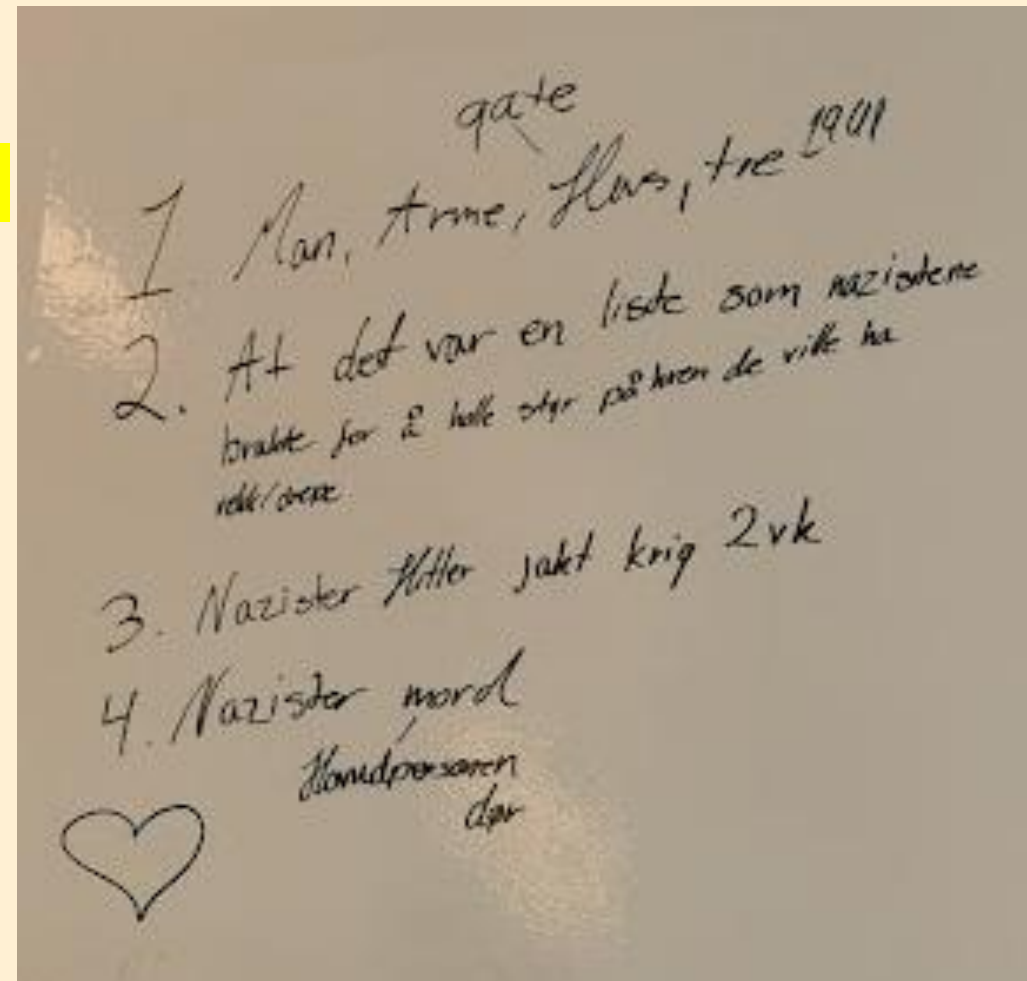 gate
1. Man, Arme, Hus, tre 1901
2. At det var en liste som nazistene
brukte for å holle styr på hvem de ville ha
vekk/drepe
3. Nazister Hitler jakt krig 2vk
4. Nazister mord
Hovedpersonen
dør